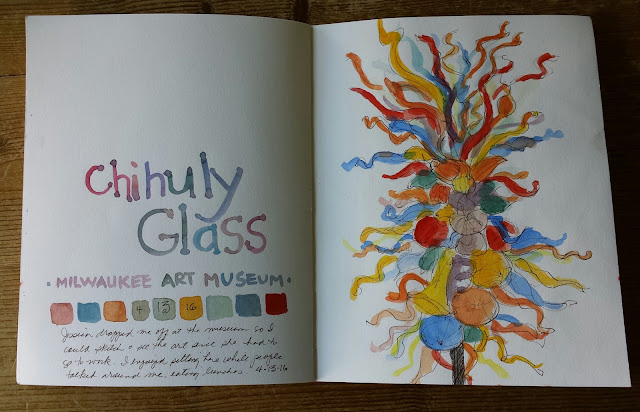 Chihuly
Glass
• MILWAUKEE ART MUSEUM •
4 13 16
Jessica dropped me off at the museum so I
could sketch & see the art since she had to
go to work. I enjoyed sitting here while people
talked around me, eating lunches. 4-13-16